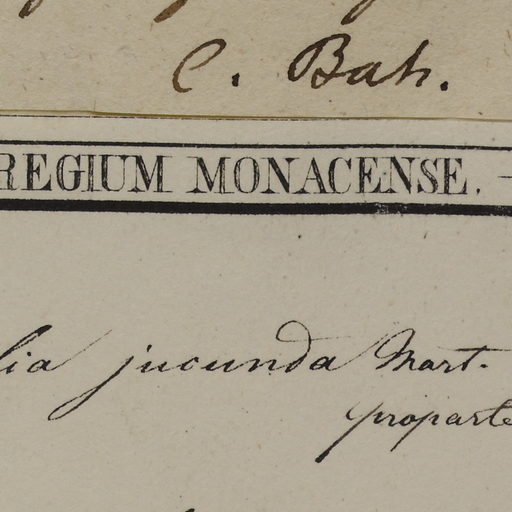 C. Bah.
REGIUM MONACENSE. —
lia jucunda Mart.
proparte